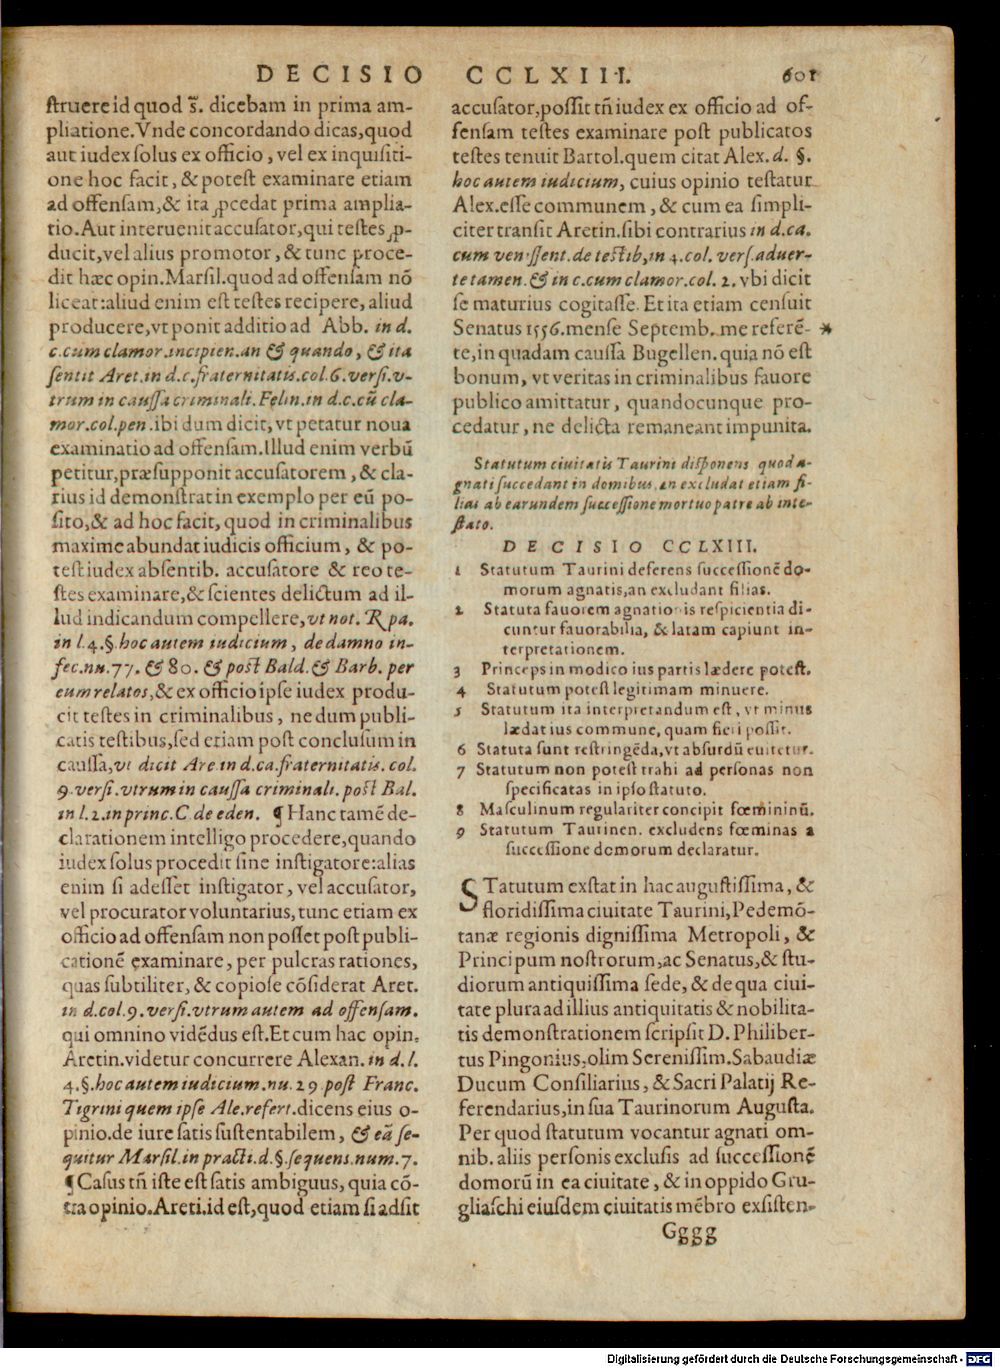 DECISIO CCLXIII. 601
ſtruere id quod s̄. dicebam in prima am-
pliatione. Vnde concordando dicas, quod
aut iudex ſolus ex officio, vel ex inquiſiti-
one hoc facit, & poteſt examinare etiam
ad offenſam, & ita ꝓcedat prima amplia-
tio. Aut interuenit accuſator, qui teſtes ꝓ-
ducit, vel alius promotor, & tunc proce-
dit hæc opin. Marſil. quod ad offenſam nō
liceat: aliud enim eſt teſtes recipere, aliud
producere, vt ponit additio ad Abb. in d.
c. cum clamor. incipien. an & quando, & ita
ſentit Aret. in d. c. fraternitatis. col. 6. verſi. v-
trum in cauſſa criminali. Felin. in d. c. cū cla-
mor. col. pen. ibi dum dicit, vt petatur noua
examinatio ad offenſam. Illud enim verbū
petitur, præſupponit accuſatorem, & cla-
rius id demonſtrat in exemplo per eū po-
ſito, & ad hoc facit, quod in criminalibus
maxime abundat iudicis officium, & po-
teſt iudex abſentib. accuſatore & reo te-
ſtes examinare, & ſcientes delictum ad il-
lud indicandum compellere, vt not. Ripa.
in l. 4. §. hoc autem iudicium, de damno in-
fec. nu. 77. & 80. & poſt Bald. & Barb. per
eum relatos, & ex officio ipſe iudex produ-
cit teſtes in criminalibus, ne dum publi-
catis teſtibus, ſed etiam poſt concluſum in
cauſſa, vt dicit Are. in d. ca. fraternitatis. col.
9. verſi. vtrum in cauſſa criminali. poſt Bal.
in l. 2. in princ. C de eden. ¶ Hanc tamē de-
clarationem intelligo procedere, quando
iudex ſolus procedit ſine inſtigatore: alias
enim ſi adeſſet inſtigator, vel accuſator,
vel procurator voluntarius, tunc etiam ex
officio ad offenſam non poſſet poſt publi-
cationē examinare, per pulcras rationes,
quas ſubtiliter, & copioſe cōſiderat Aret.
in d. col. 9. verſi. vtrum autem ad offenſam.
qui omnino vidēdus eſt. Et cum hac opin.
Aretin. videtur concurrere Alexan. in d. l.
4. §. hoc autem iudicium. nu. 29 poſt Franc.
Tigrini quem ipſe Ale. refert. dicens eius o-
pinio. de iure ſatis ſuſtentabilem, & eā ſe-
quitur Marſil. in practi. d. §. ſequens. num. 7.
¶ Caſus tn̄ iſte eſt ſatis ambiguus, quia cō-
tra opinio. Areti. id eſt, quod etiam ſi adſit
accuſator, poſſit tn̄ iudex ex officio ad of-
fenſam teſtes examinare poſt publicatos
teſtes tenuit Bartol. quem citat Alex. d. §.
hoc autem iudicium, cuius opinio teſtatur
Alex. eſſe communem, & cum ea ſimpli-
citer tranſit Aretin. ſibi contrarius in d. ca.
cum veniſſent. de teſtib, in 4. col. verſ. aduer-
te tamen. & in c. cum clamor. col. 2. vbi dicit
ſe maturius cogitaſſe. Et ita etiam cenſuit
Senatus 1556. menſe Septemb. me referē- *
te, in quadam cauſſa Bugellen. quia nō eſt
bonum, vt veritas in criminalibus fauore
publico amittatur, quandocunque pro-
cedatur, ne delicta remaneant impunita.
Statutum ciuitatis Taurini diſponens quod a-
gnati ſuccedant in domibus, an excludat etiam fi-
lias ab earundem ſucceſſione mortuo patre ab inte-
ſtato.
DECISIO CCLXIII.
1 Statutum Taurini deferens ſucceſſionē do-
morum agnatis, an excludant filias.
2 Statuta fauorem agnationis reſpicientia di-
cuntur fauorabilia, & latam capiunt in-
terpretationem.
3 Princeps in modico ius partis lædere poteſt.
4 Statutum poteſt legitimam minuere.
5 Statutum ita interpretandum eſt, vt minus
lædat ius commune, quam fieri poſſit.
6 Statuta ſunt reſtringēda, vt abſurdū euitetur.
7 Statutum non poteſt trahi ad perſonas non
ſpecificatas in ipſo ſtatuto.
8 Maſculinum regulariter concipit fœmininū.
9 Statutum Taurinen. excludens fœminas a
ſucceſſione domorum declaratur.
STatutum exſtat in hac auguſtiſſima, &
floridiſſima ciuitate Taurini, Pedemō-
tanæ regionis digniſſima Metropoli, &
Principum noſtrorum, ac Senatus, & ſtu-
diorum antiquiſſima ſede, & de qua ciui-
tate plura ad illius antiquitatis & nobilita-
tis demonſtrationem ſcripſit D. Philiber-
tus Pingonius, olim Sereniſſim. Sabaudiæ
Ducum Conſiliarius, & Sacri Palatij Re-
ferendarius, in ſua Taurinorum Auguſta.
Per quod ſtatutum vocantur agnati om-
nib. aliis perſonis excluſis ad ſucceſſionē
domorū in ea ciuitate, & in oppido Gru-
gliaſchi eiuſdem ciuitatis mēbro exſiſten-
Gggg
Digitalisierung gefördert durch die Deutsche Forschungsgemeinschaft - DFG